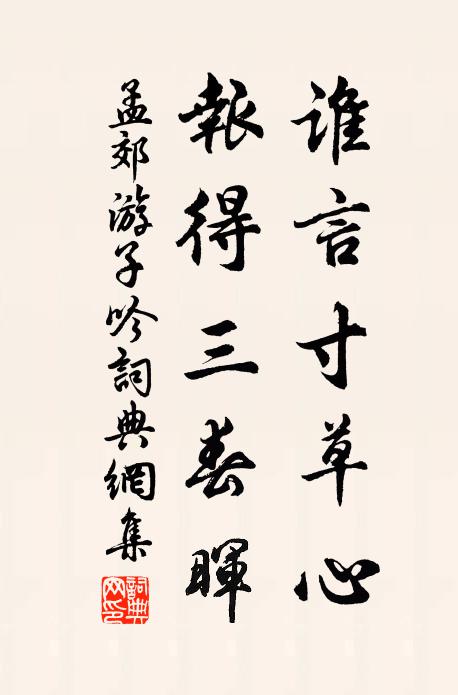 誰言寸草心
報得三春暉
孟郊游子吟詞典網集
詞典网印